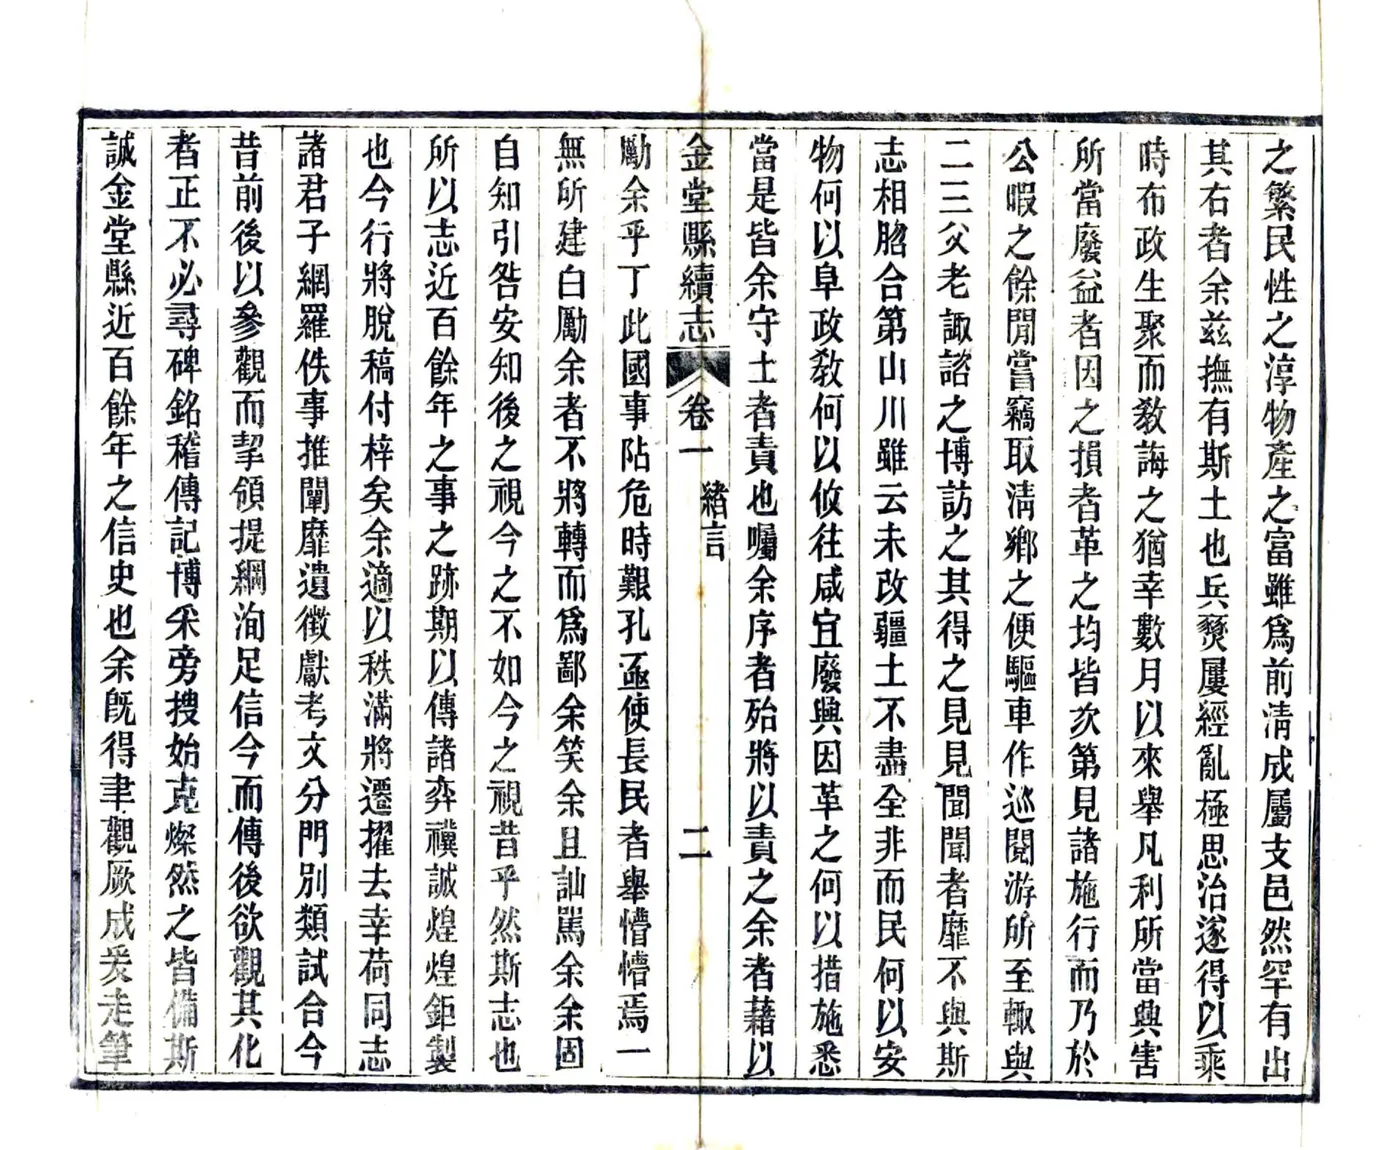 之繁民性之淳物產之富雖爲前清成屬支邑然罕有出
其右者余茲撫有斯土也兵燹屢經亂極思治遂得以乘
時布政生聚而敎誨之猶幸數月以來舉凡利所當興害
所當廢益者因之損者革之均皆次第見諸施行而乃於
公暇之餘閒嘗竊取淸鄉之便驅車作巡閱游所至輒與
二三父老諏諮之博訪之其得之見見聞聞者靡不與斯
志相脗合第山川雖云未改疆土不盡全非而民何以安
物何以阜政敎何以攸往咸宜廢興因革之何以措施悉
當是皆余守土者責也囑余序者殆將以責之余者藉以
金堂縣續志 卷一 緒言 二
勵余乎丁此國事阽危時艱孔亟使長民者舉懵懵焉一
無所建白勵余者不將轉而爲鄙余笑余且訕駡余余固
自知引咎安知後之視今之不如今之視昔乎然斯志也
所以志近百餘年之事之跡期以傳諸弈禩誠煌煌鉅製
也今行將脫稿付梓矣余適以秩滿將遷擢去幸荷同志
諸君子網羅佚事推闡靡遺徵獻考文分門別類試合今
昔前後以參觀而挈領提綱洵足信今而傳後欲觀其化
者正不必尋碑銘稽傳記博釆旁搜始克燦然之皆備斯
誠金堂縣近百餘年之信史也余旣得聿觀厥成爰走筆